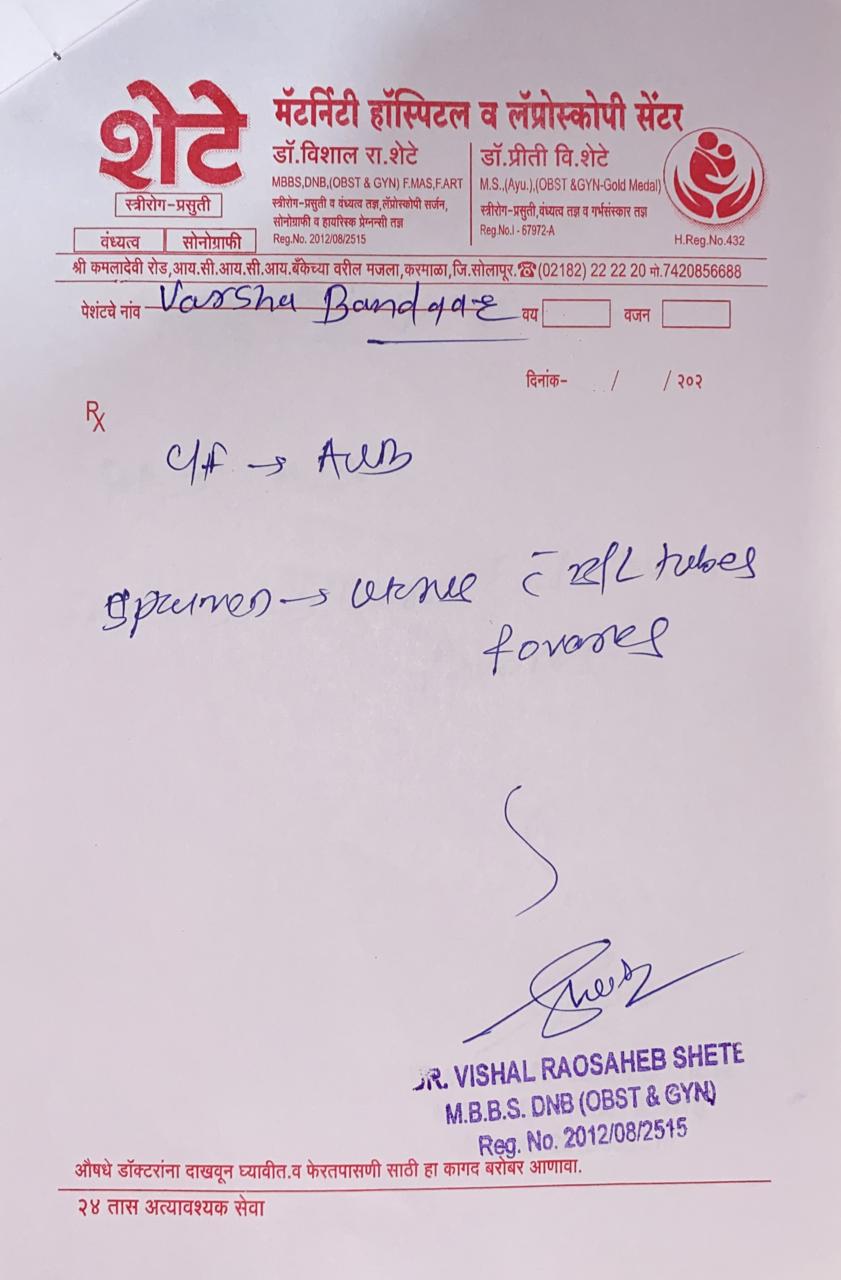 शेटे
स्त्रीरोग-प्रसुती
वंध्यत्व सोनोग्राफी
मॅटर्निटी हॉस्पिटल व लॅप्रोस्कोपी सेंटर
डॉ.विशाल रा.शेटे
MBBS,DNB,(OBST & GYN) F.MAS,F.ART
स्त्रीरोग-प्रसुती व वंध्यत्व तज्ञ,लॅप्रोस्कोपी सर्जन,
सोनोग्राफी व हायरिस्क प्रेग्नन्सी तज्ञ
Reg.No. 2012/08/2515
डॉ.प्रीती वि.शेटे
M.S.,(Ayu.),(OBST &GYN-Gold Medal)
स्त्रीरोग-प्रसुती,वंध्यत्व तज्ञ व गर्भसंस्कार तज्ञ
Reg.No.I - 67972-A
H.Reg.No.432
श्री कमलादेवी रोड,आय.सी.आय.सी.आय.बँकेच्या वरील मजला,करमाळा,जि.सोलापूर.☎(02182) 22 22 20 मो.7420856688
पेशंटचे नांव Varsha वय वजन
दिनांक- / / २०२
Rx
→ AUB
specimen → uterus c̄ tubes
ovaries
DR. VISHAL RAOSAHEB SHETE
M.B.B.S. DNB (OBST & GYN)
Reg. No. 2012/08/2515
औषधे डॉक्टरांना दाखवून घ्यावीत.व फेरतपासणी साठी हा कागद बरोबर आणावा.
२४ तास अत्यावश्यक सेवा